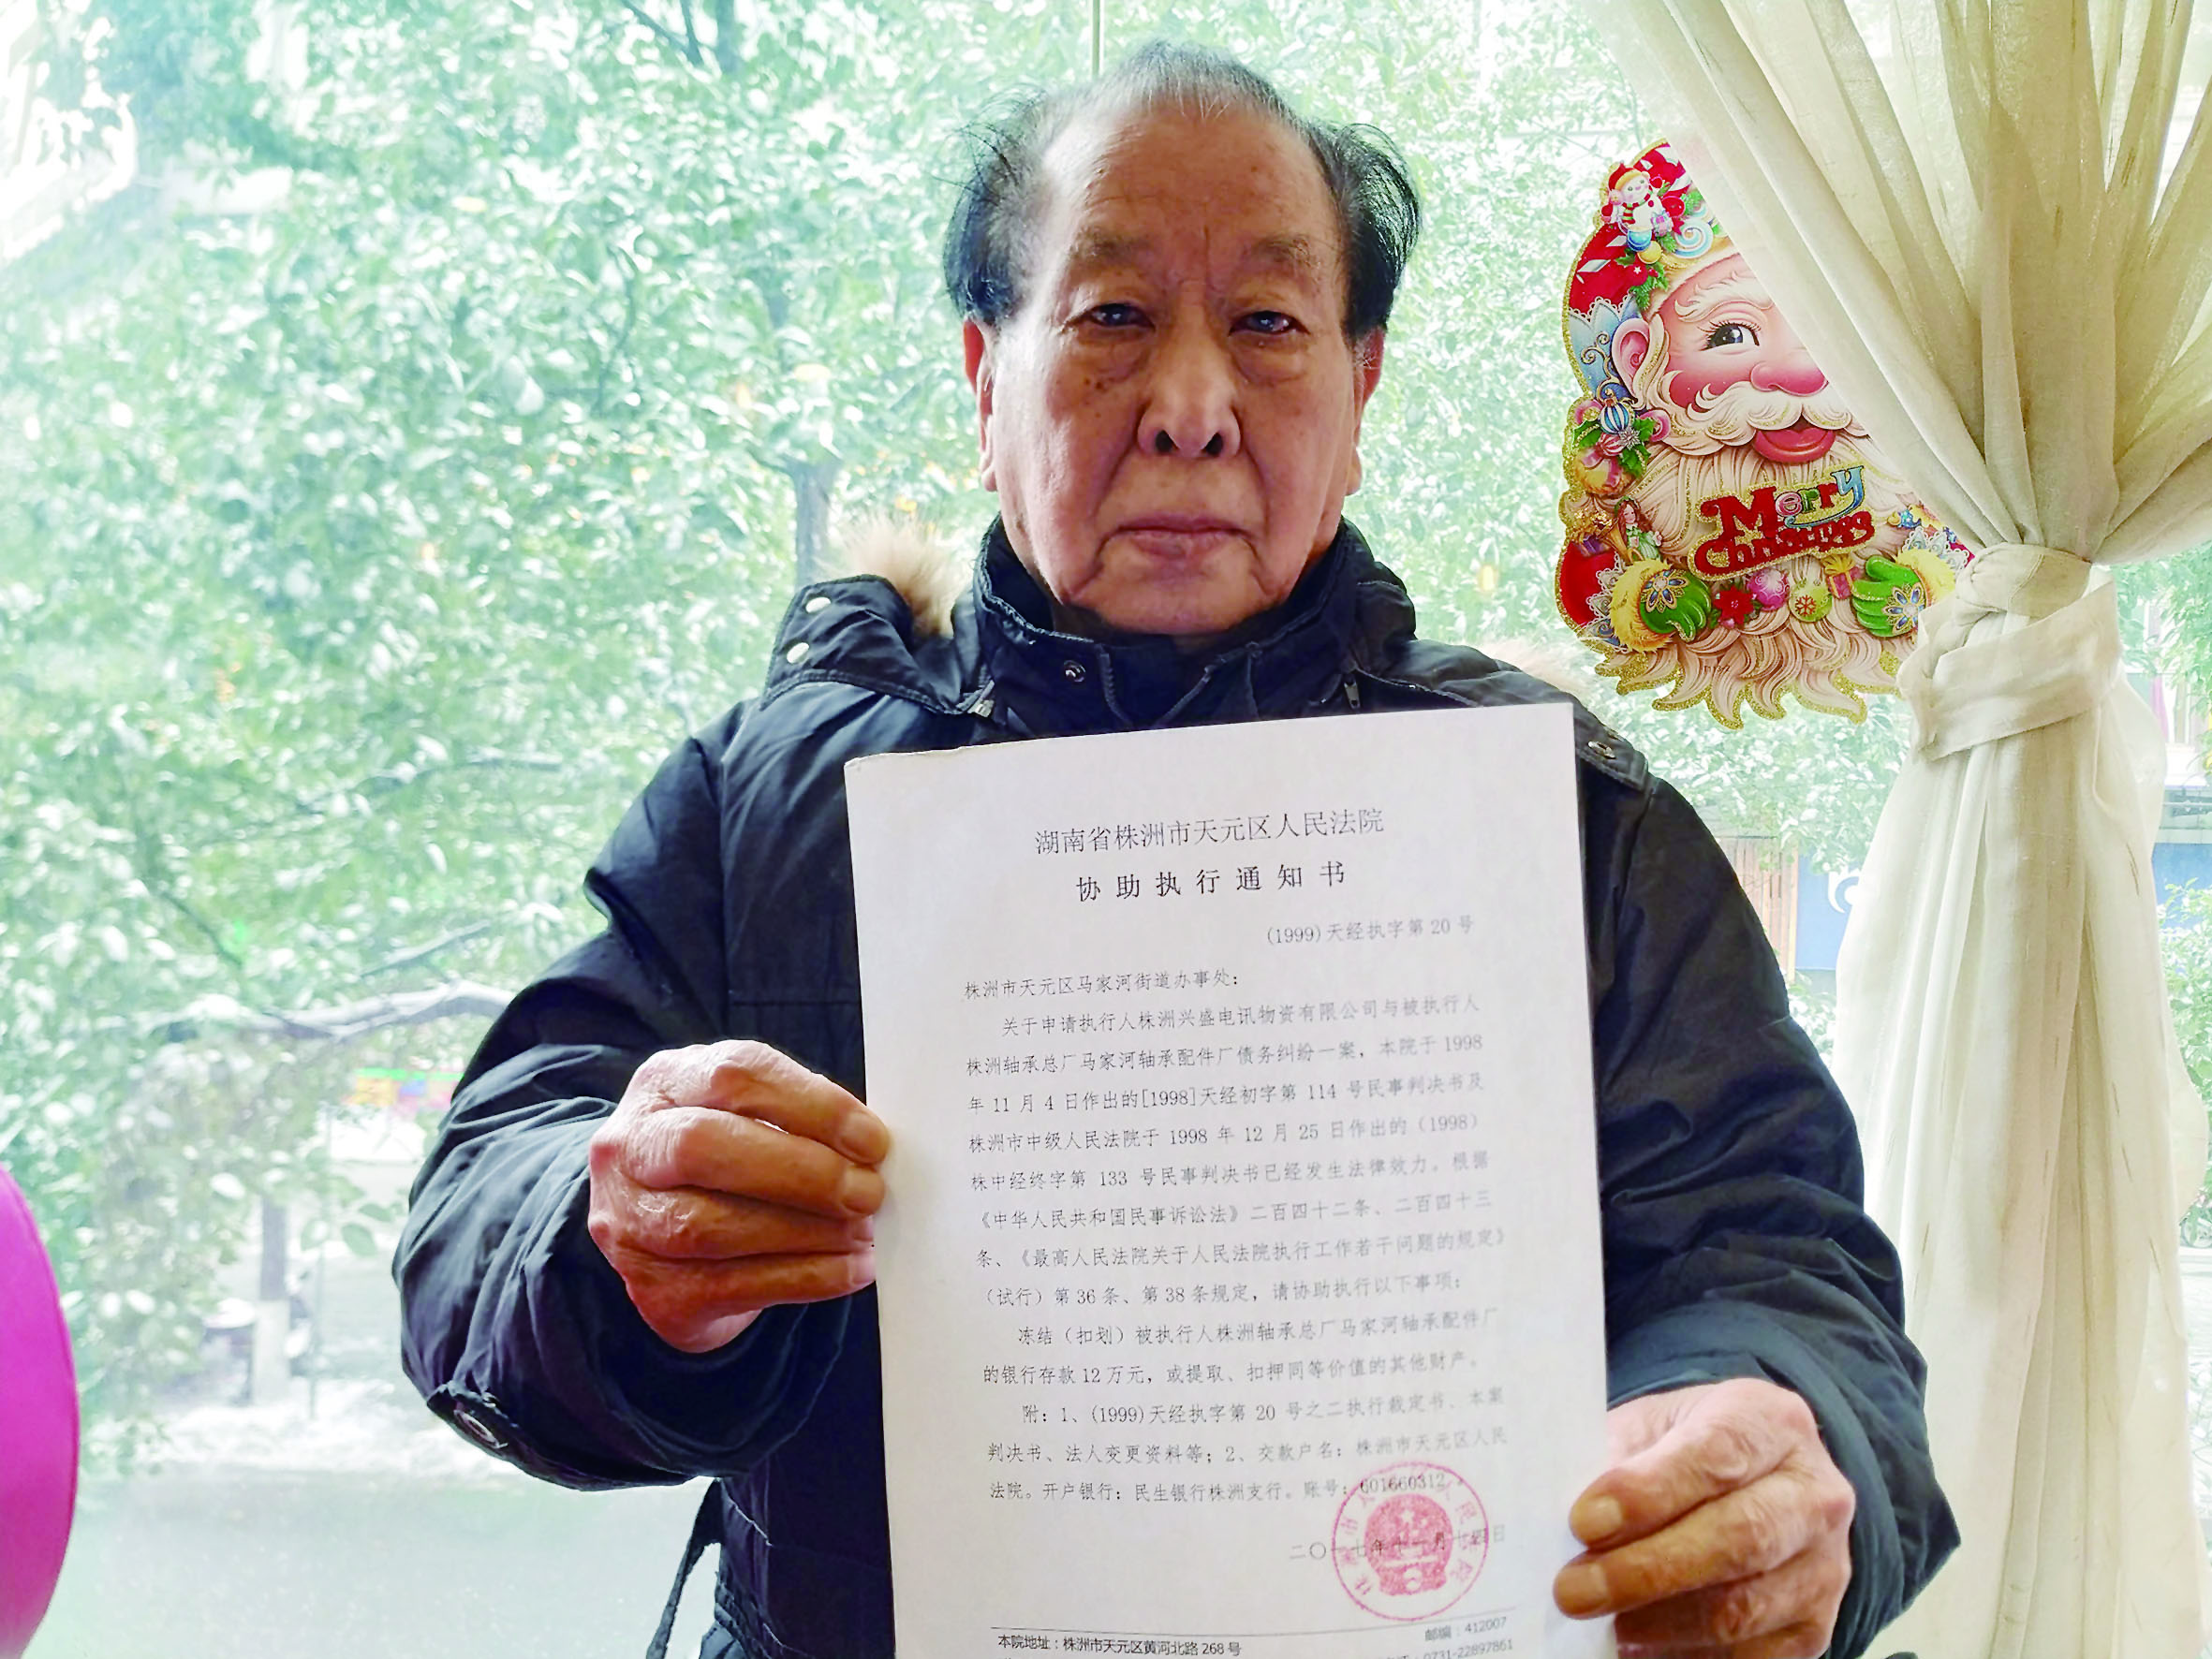 Merry
Christmas
湖南省株洲市天元区人民法院
协助执行通知书
(1999)天经执字第20号
株洲市天元区马家河街道办事处：
关于申请执行人株洲兴盛电讯物资有限公司与被执行人
株洲轴承总厂马家河轴承配件厂债务纠纷一案，本院于1998
年11月4日作出的[1998]天经初字第114号民事判决书及
株洲市中级人民法院于1998年12月25日作出的（1998）
株中经终字第133号民事判决书已经发生法律效力。根据
《中华人民共和国民事诉讼法》二百四十二条、二百四十三
条、《最高人民法院关于人民法院执行工作若干问题的规定》
（试行）第36条、第38条规定，请协助执行以下事项：
冻结（扣划）被执行人株洲轴承总厂马家河轴承配件厂
的银行存款12万元，或提取、扣押同等价值的其他财产。
附：1、(1999)天经执字第20号之二执行裁定书、本案
判决书、法人变更资料等；2、交款户名：株洲市天元区人民
法院。开户银行：民生银行株洲支行。账号：601660312
二〇一七年十一月十四日
本院地址：株洲市天元区黄河北路268号
邮编：412007
0731-22897861